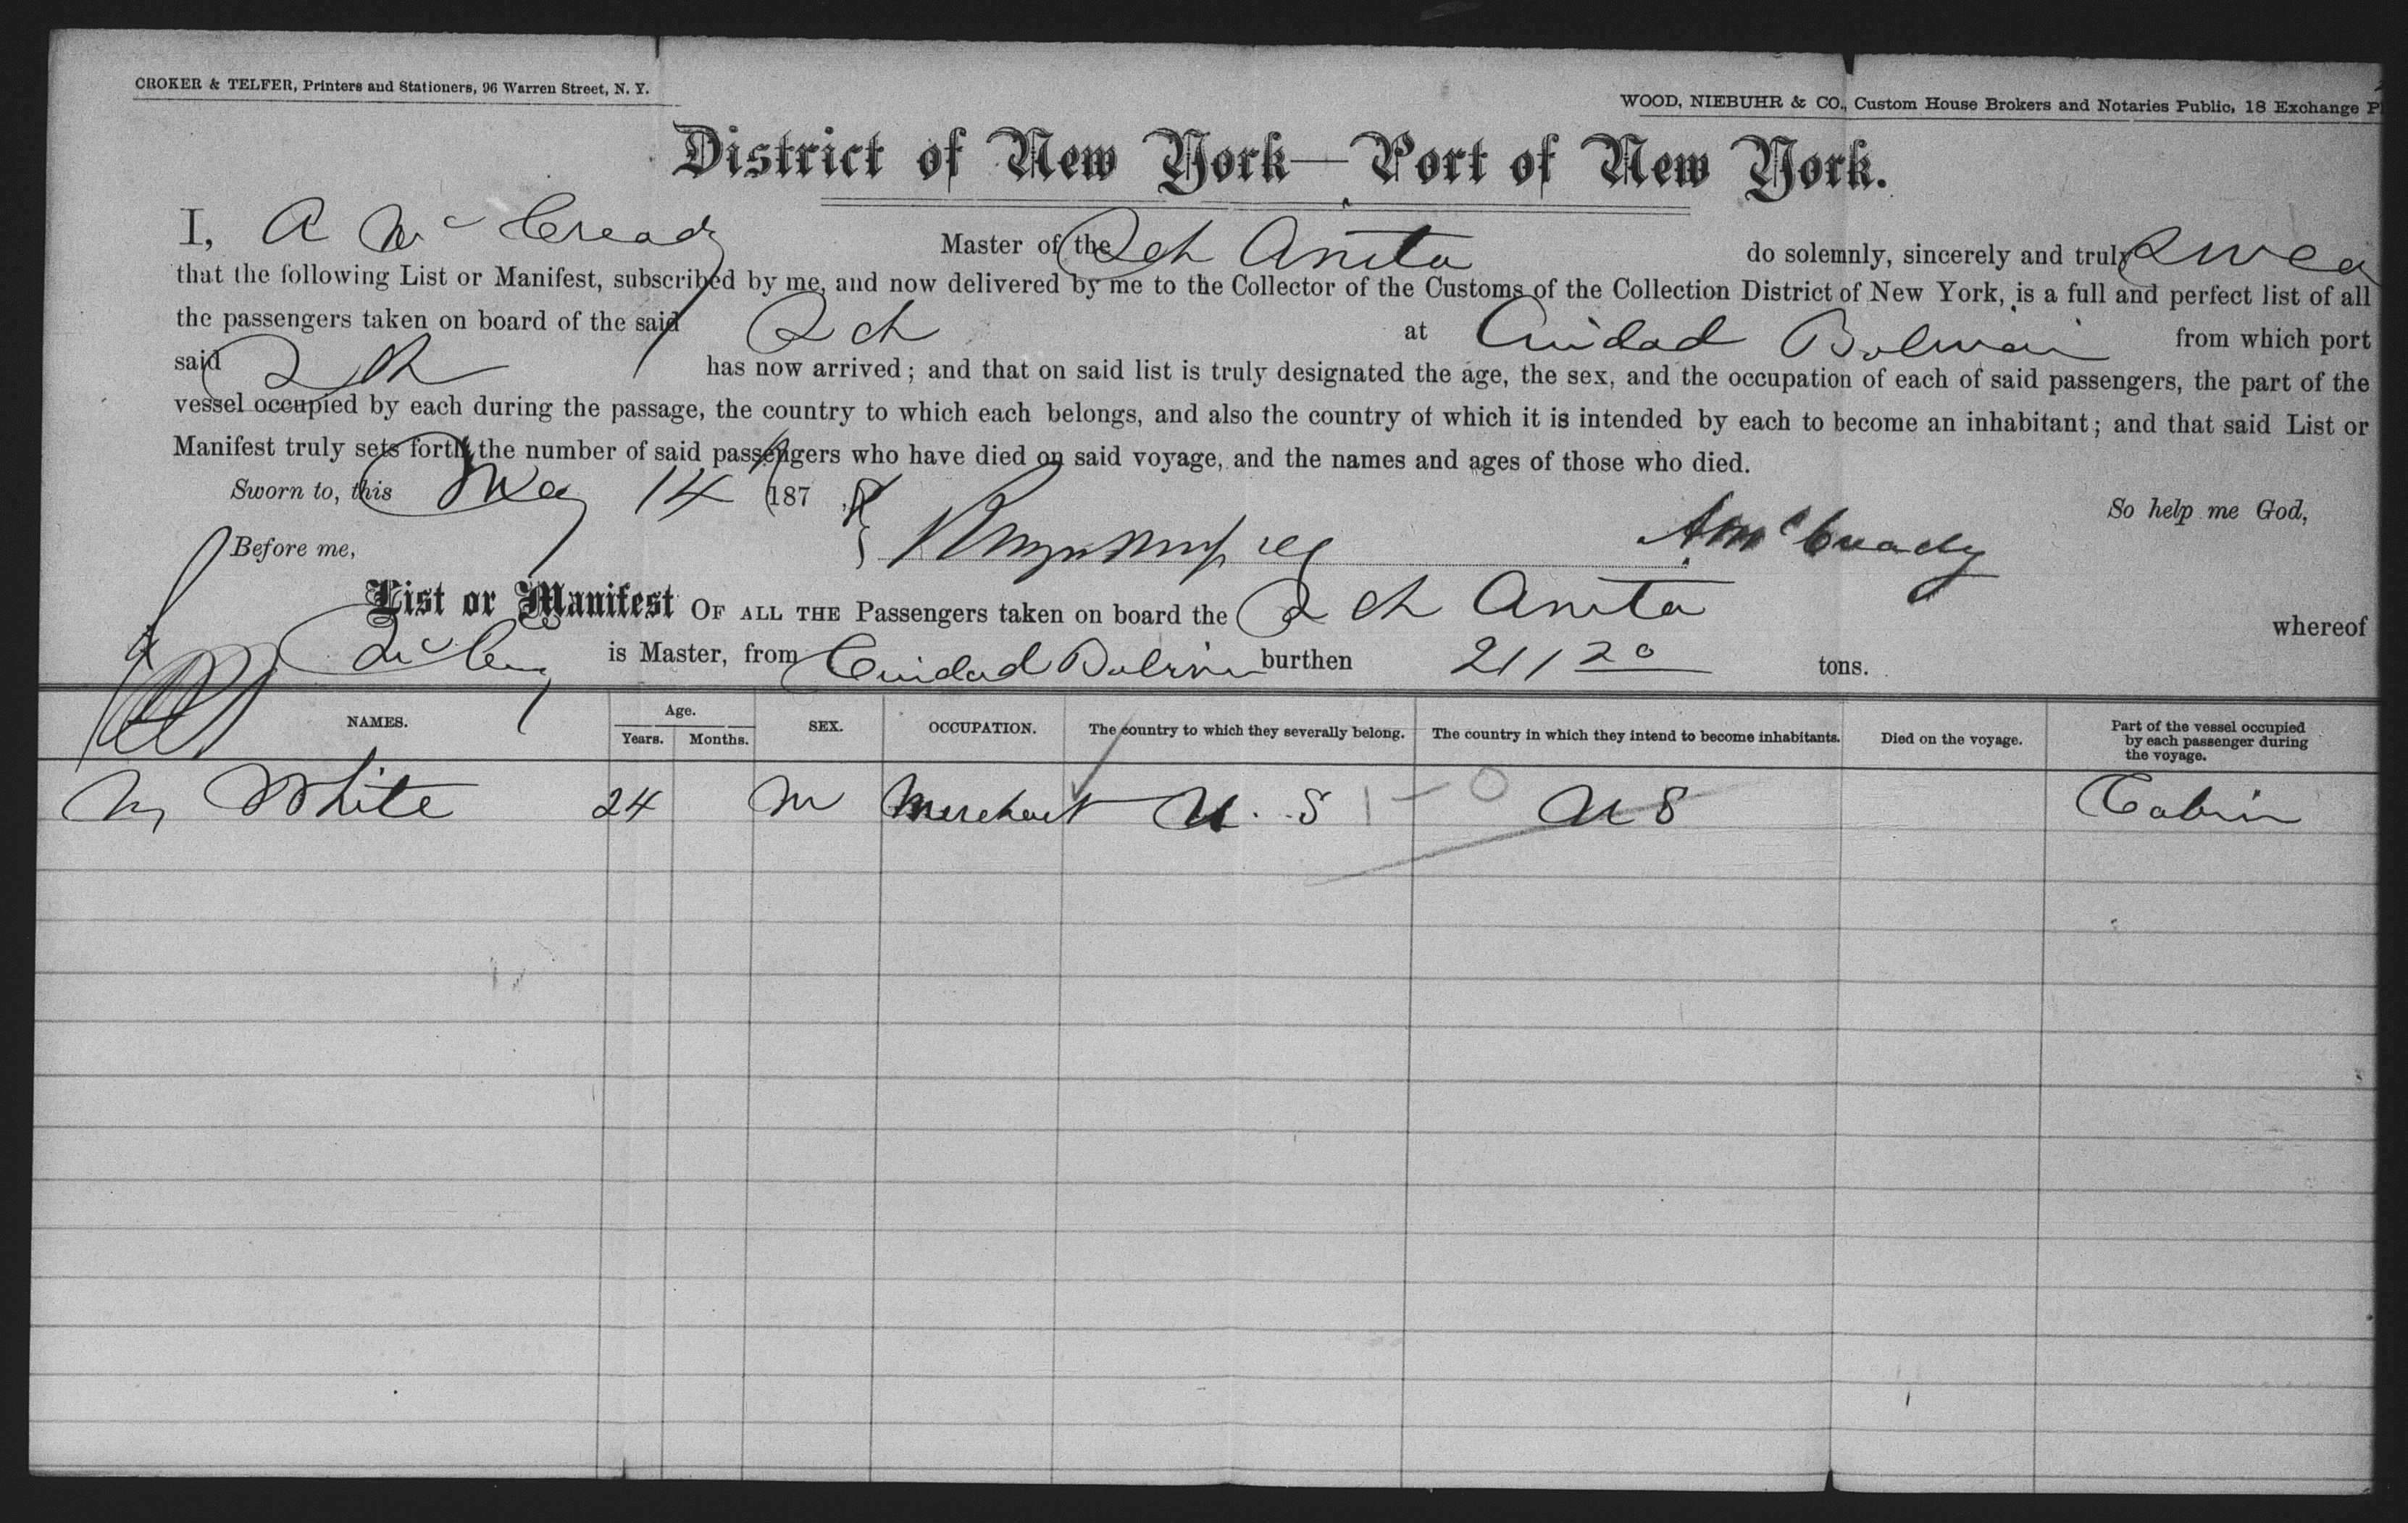 CROKER & TELFER, Printers and Stationers, 96 Warren Street, N. Y.
WOOD, NIEBUHR & CO., Custom House Brokers and Notaries Public, 18 Exchange Pl
District of New York—Port of New York.
I, A McCready Master of the Sch Anita do solemnly, sincerely and truly swea
that the following List or Manifest, subscribed by me, and now delivered by me to the Collector of the Customs of the Collection District of New York, is a full and perfect list of all
the passengers taken on board of the said Sch at Cuidad Bolivar from which port
said Sch has now arrived; and that on said list is truly designated the age, the sex, and the occupation of each of said passengers, the part of the
vessel occupied by each during the passage, the country to which each belongs, and also the country of which it is intended by each to become an inhabitant; and that said List or
Manifest truly sets forth the number of said passengers who have died on said voyage, and the names and ages of those who died.
Sworn to, this May 14 187 So help me God,
Before me, A McCready
List or Manifest OF ALL THE Passengers taken on board the Sch Anita whereof
is Master, from Cuidad Bolivar burthen 211 20 tons.
NAMES. Age. Years. Months. SEX. OCCUPATION. The country to which they severally belong. The country in which they intend to become inhabitants. Died on the voyage. Part of the vessel occupied by each passenger during the voyage.
M White 24 M Merchant U. S 1 - 0 U S Cabin